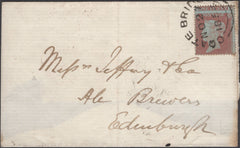 E BRI
NO 22
1861
Messrs Jeffrey & Co
Ale Brewers
Edinburgh